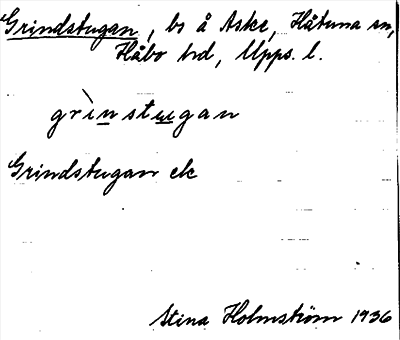 Grindstugan, bs å Aske, Håtuna sn,
Håbo hd, Upps. l.
grìnstugan
Grindstugan ek
Stina Holmström 1936